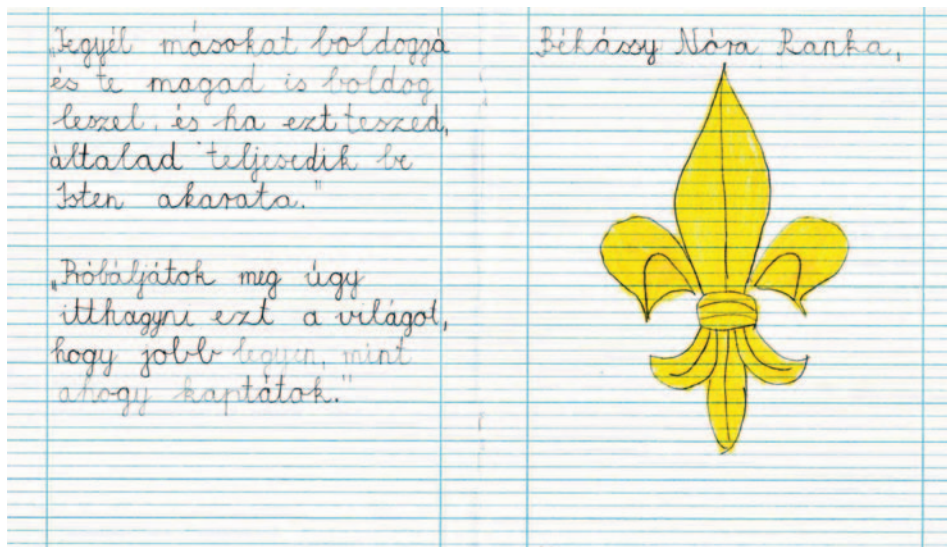 „Tegyél másokat boldoggá
és te magad is boldog
leszel, és ha ezt teszed,
általad teljesedik be
Isten akarata."
„Próbáljátok meg úgy
itthagyni ezt a világot,
hogy jobb legyen, mint
ahogy kaptátok."
Békássy Nóra Ranka,